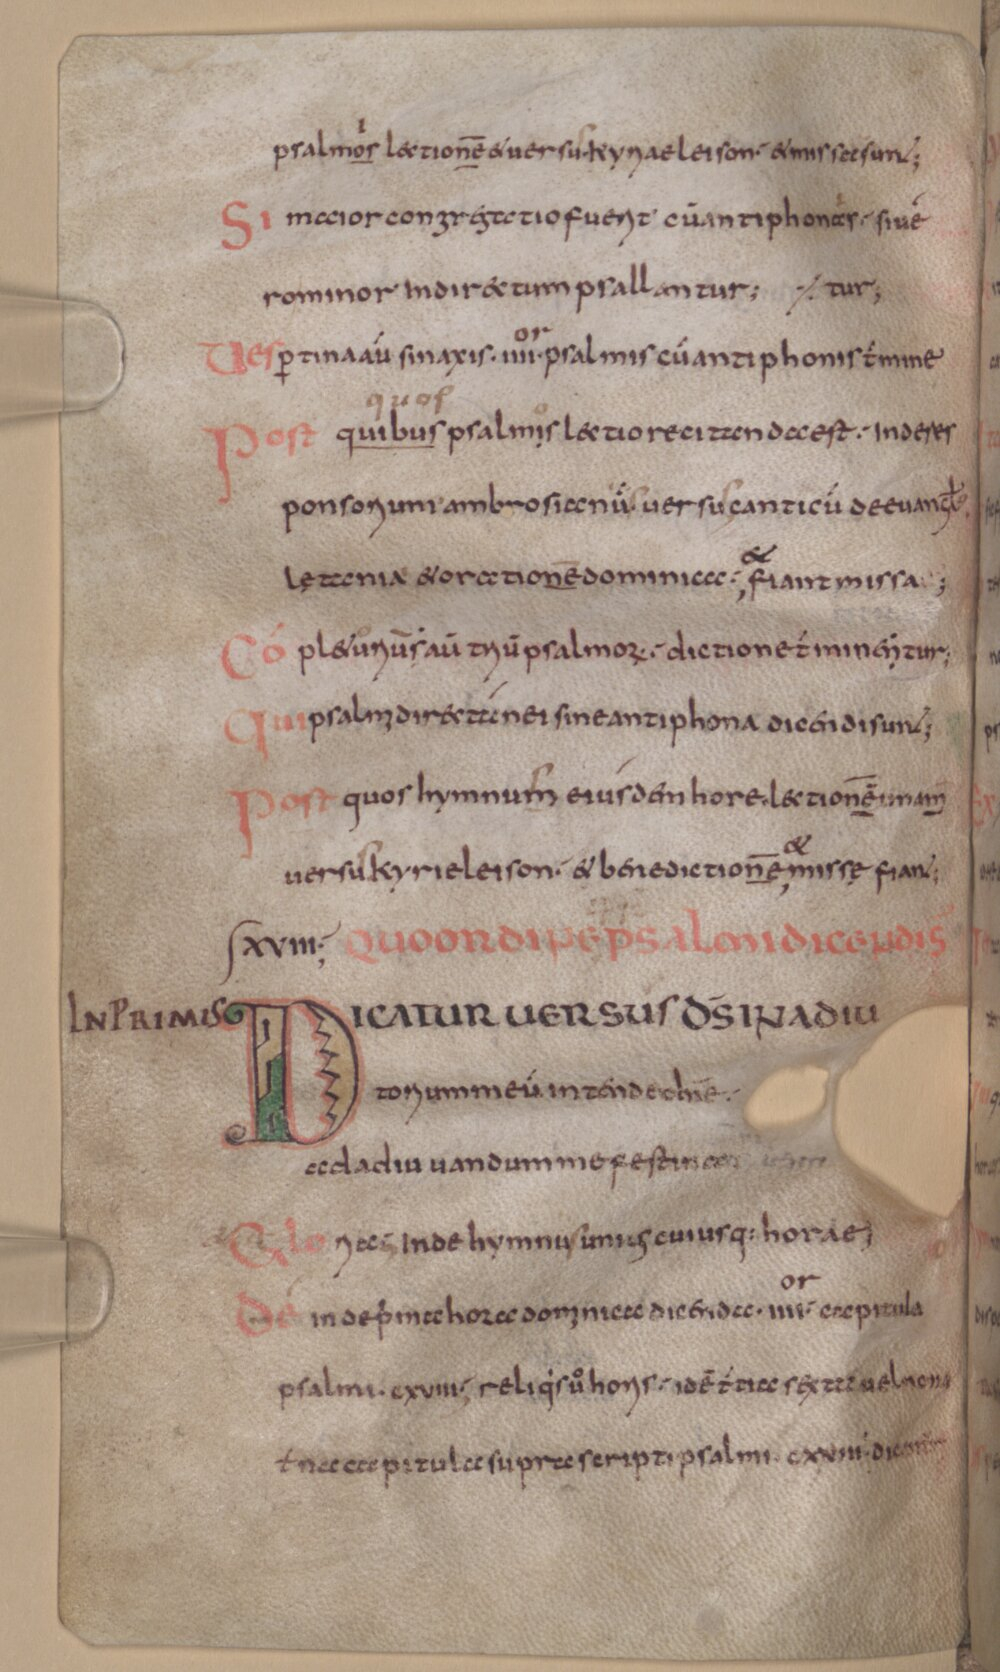 psalmos lectionē & versu. kyriaeleison. & missae sunt;
Si maior congregatio fuerit cū antiphonas. sivē
rominor indirectum psallantur; ⁊ tur;
Vespertina aū sinaxis. iiii or. psalmis cū antiphonis t̄mine
Post quibus quos psalmis lectio recitanda est. Inde res
ponsorium ambrosianū. versu canticū de evangl̄
letania & orationē dominica. & fiant missa;
Cō pletoriūs aū triū psalmoꝝ. dictione t̄minentur;
Qui psalmi directanei sine antiphona dicendi sunt;
Post quos hymnum eiusdem hore. lectionē unam
versu kyrieleison. & benedictionē & missę fiant;
xviii; QUO ORDINE PSALMI DICENDI S̄
IN PRIMIS DICATUR VERSUS D̄S IN ADIU
torium meū intende dn̄e.
ad adiuvandum me festina
Gloria; Inde hymnus uniuscuiusq: horae;
Deinde prima hora dominica dicenda. iiii or. capitula
psalmi. cxviii; reliqis ů horis. idē t̄tia sexta vel nona
t̄na capitula supra scripti psalmi. cxviii. dicantr̄